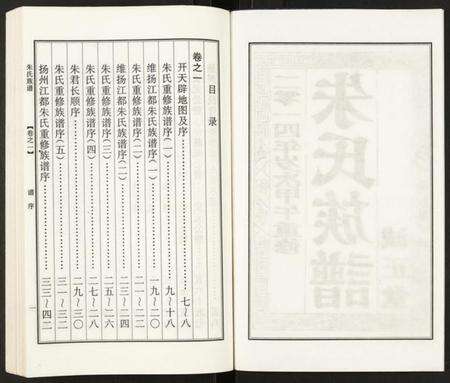 目录
卷之一
开天辟地图及序……七~八
朱氏重修族谱序(一)……九~十八
维扬江都朱氏族谱序(一)……一九~二〇
朱氏重修族谱序(二)……二一~二二
维扬江都朱氏族谱序(二)……二三~二四
朱氏重修族谱序(三)……二五~二六
朱氏重修族谱序(四)……二七~二八
朱君长顺序……二九~三〇
朱氏重修族谱序(五)……三一~三二
扬州江都朱氏重修族谱序……三三~四二
朱氏族谱
【卷之一】
谱序
一
朱氏族譜